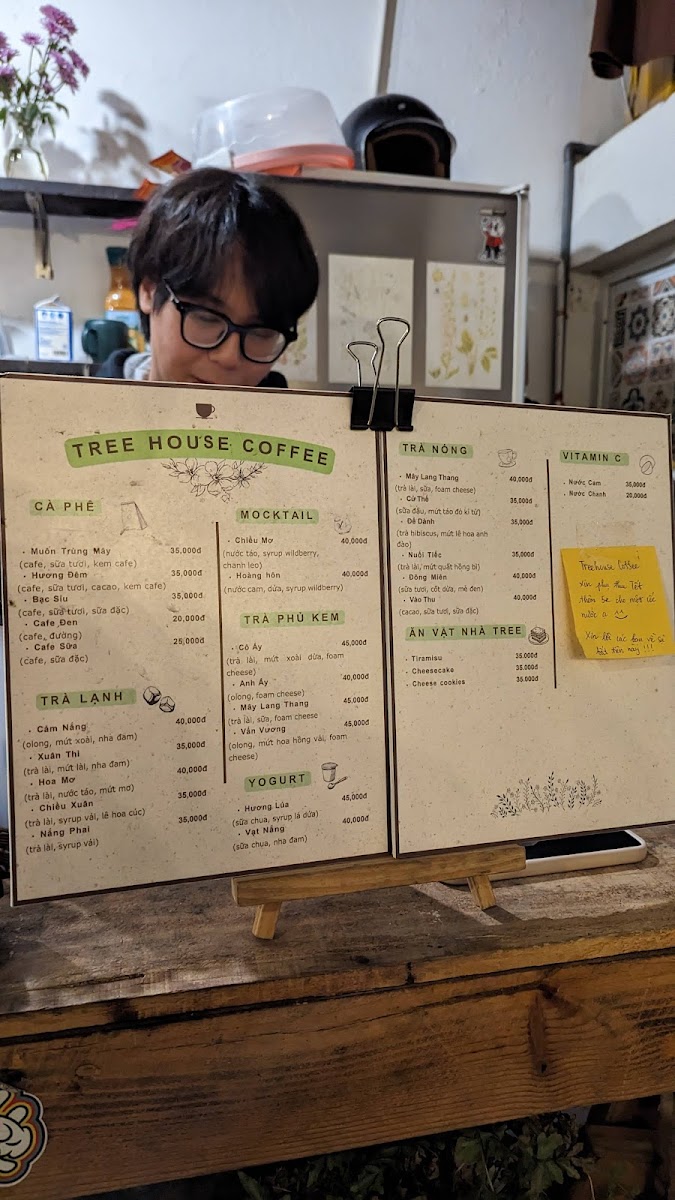 TREE HOUSE COFFEE
CÀ PHÊ
· Muôn Trùng Mây 35,000đ
(cafe, sữa tươi, kem cafe)
· Hương Đêm 35,000đ
(cafe, sữa tươi, cacao, kem cafe)
· Bạc Sỉu 35,000đ
(cafe, sữa tươi, sữa đặc)
· Cafe Đen 20,000đ
(cafe, đường)
· Cafe Sữa 25,000đ
(cafe, sữa đặc)
TRÀ LẠNH
· Cảm Nắng 40,000đ
(olong, mứt xoài, nha đam)
· Xuân Thì 35,000đ
(trà lài, mứt lài, nha đam)
· Hoa Mơ 40,000đ
(trà lài, nước táo, mứt mơ)
· Chiều Xuân 35,000đ
(trà lài, syrup vải, lê hoa cúc)
· Nắng Phai 35,000đ
(trà lài, syrup vải)
MOCKTAIL
· Chiều Mơ 40,000đ
(nước táo, syrup wildberry,
chanh leo)
· Hoàng hôn 40,000đ
(nước cam, dứa, syrup wildberry)
TRÀ PHỦ KEM
· Cô Ấy 45,000đ
(trà lài, mứt xoài dừa, foam
cheese)
· Anh Ấy 40,000đ
(olong, foam cheese)
· Mây Lang Thang 45,000đ
(trà lài, sữa, foam cheese
· Vấn Vương 45,000đ
(olong, mứt hoa hồng vải, foam
cheese)
YOGURT
· Hương Lúa 45,000đ
(sữa chua, syrup lá dứa)
· Vạt Nắng 40,000đ
(sữa chua, nha đam)
TRÀ NÓNG
· Mây Lang Thang 40,000đ
(trà lài, sữa, foam cheese)
· Cứ Thế 35,000đ
(sữa đậu, mứt táo đỏ kỉ tử)
· Đề Dành 35,000đ
(trà hibiscus, mứt lê hoa anh
đào)
· Nuối Tiếc 35,000đ
(trà lài, mứt quất hồng bì)
· Đông Miên 40,000đ
(sữa tươi, cốt dừa, mè đen)
· Vào Thu 40,000đ
(cacao, sữa tươi, sữa đặc)
ĂN VẶT NHÀ TREE
· Tiramisu 35.000đ
· Cheesecake 35.000đ
· Cheese cookies 35.000đ
VITAMIN C
· Nước Cam 35,000đ
· Nước Chanh 20,000đ
Treehouse Coffee
xin phụ thu Tết
thêm 5k cho một cốc
nước ạ
Xin lỗi các bạn về sự
bất tiện này!!!